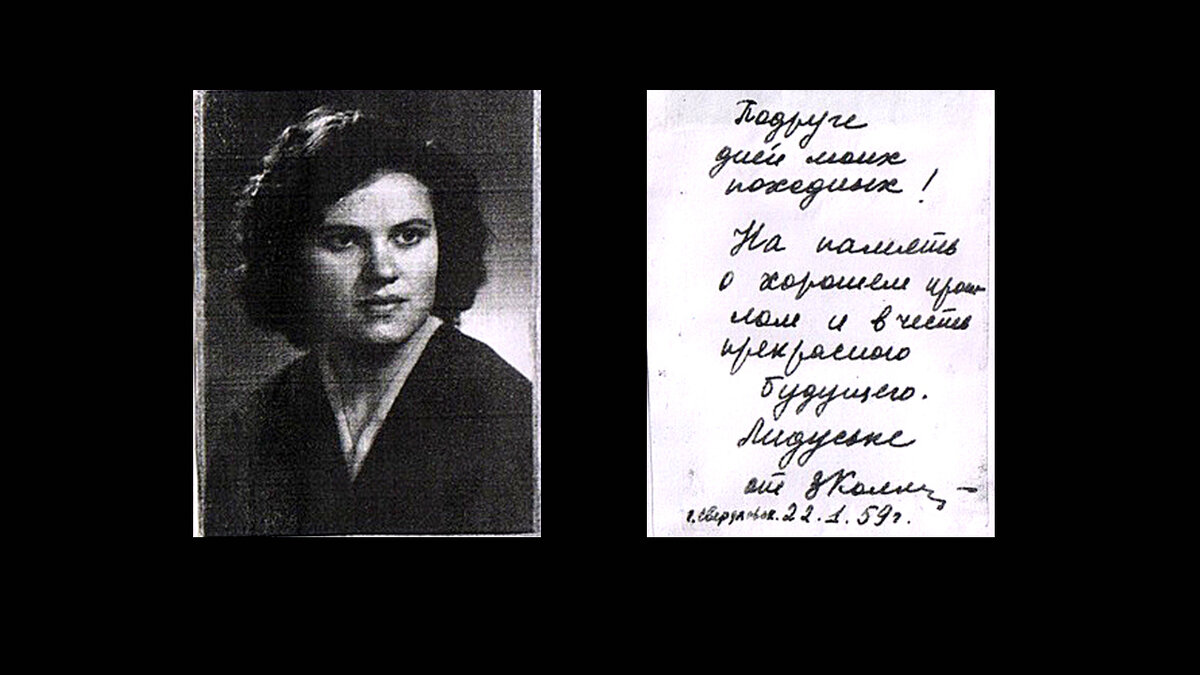 Подруге
дней моих
походных!
На память
о хорошем прош-
лом и в честь
прекрасного
будущего.
Лидуське
от ЗКолм
г. Свердловск. 22.1.59г.